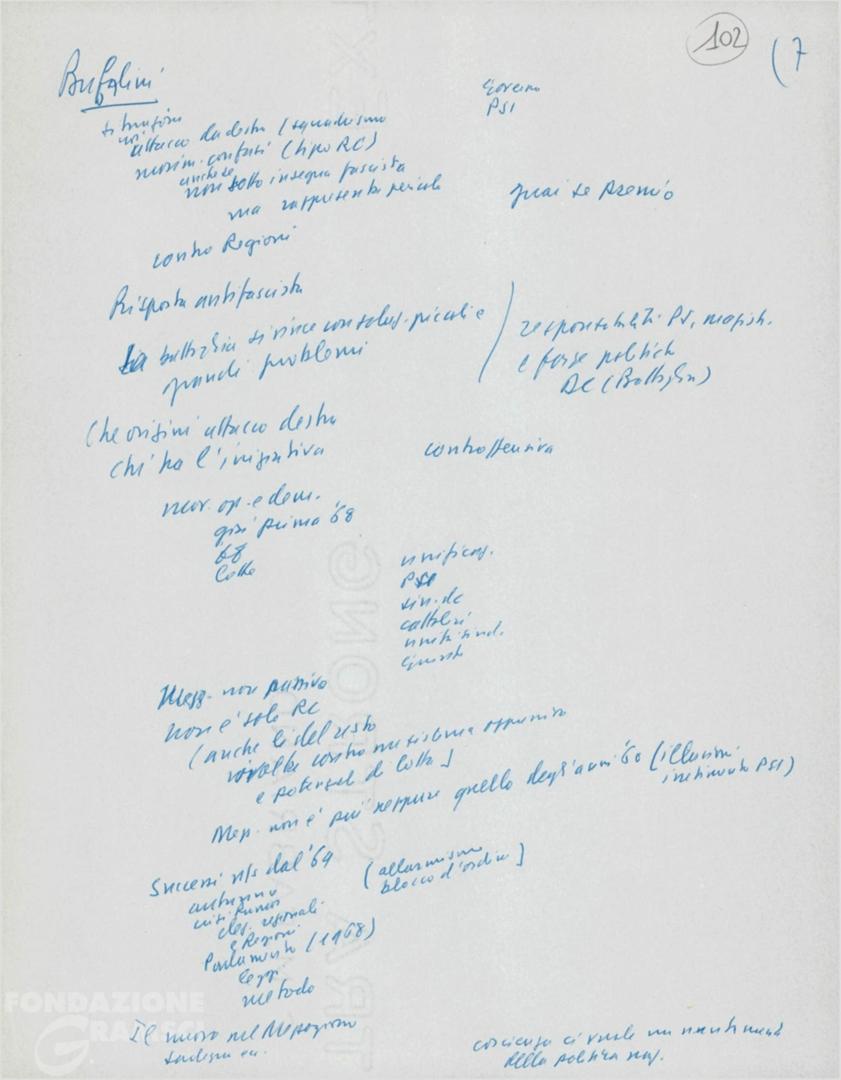 102
(7
Bufalini
Governo
PSI
situazione
attacco da destra (squadrismo
movim. confusi (tipo RC)
anche se
non sotto insegna fascista
ma rappresenta pericolo
guai se
contro Regioni
Risposta antifascista
La battaglia si vince con soluz. piccoli e
grandi problemi
responsabilità PS, magistr.
e forze politiche
DC (Battaglia)
Che origini attacco destra
chi ha l'iniziativa
controffensiva
mov. op. e dem.
già prima '68
68
lotte
unificaz.
PSI
sin. dc
cattolici
unità sind.
Mezz. non passivo
non è solo RC
(anche lì del resto
rivolta contro un sistema
e potenzial. di lotta)
Mezz. non è più neppure quello degli anni '60 (illusioni
PSI)
Successi ns dal '69
(allarmismo
blocco d'ordine)
autunno
crisi Rumor
elez. regionali
e Regioni
Parlamento (1968)
leggi
metodo
Il nuovo nel Mezzogiorno
Sardegna ecc.
coscienza ci vuole un mutamento
della politica naz.
FONDAZIONE
GRAMSCI
EX
TRA STRONG